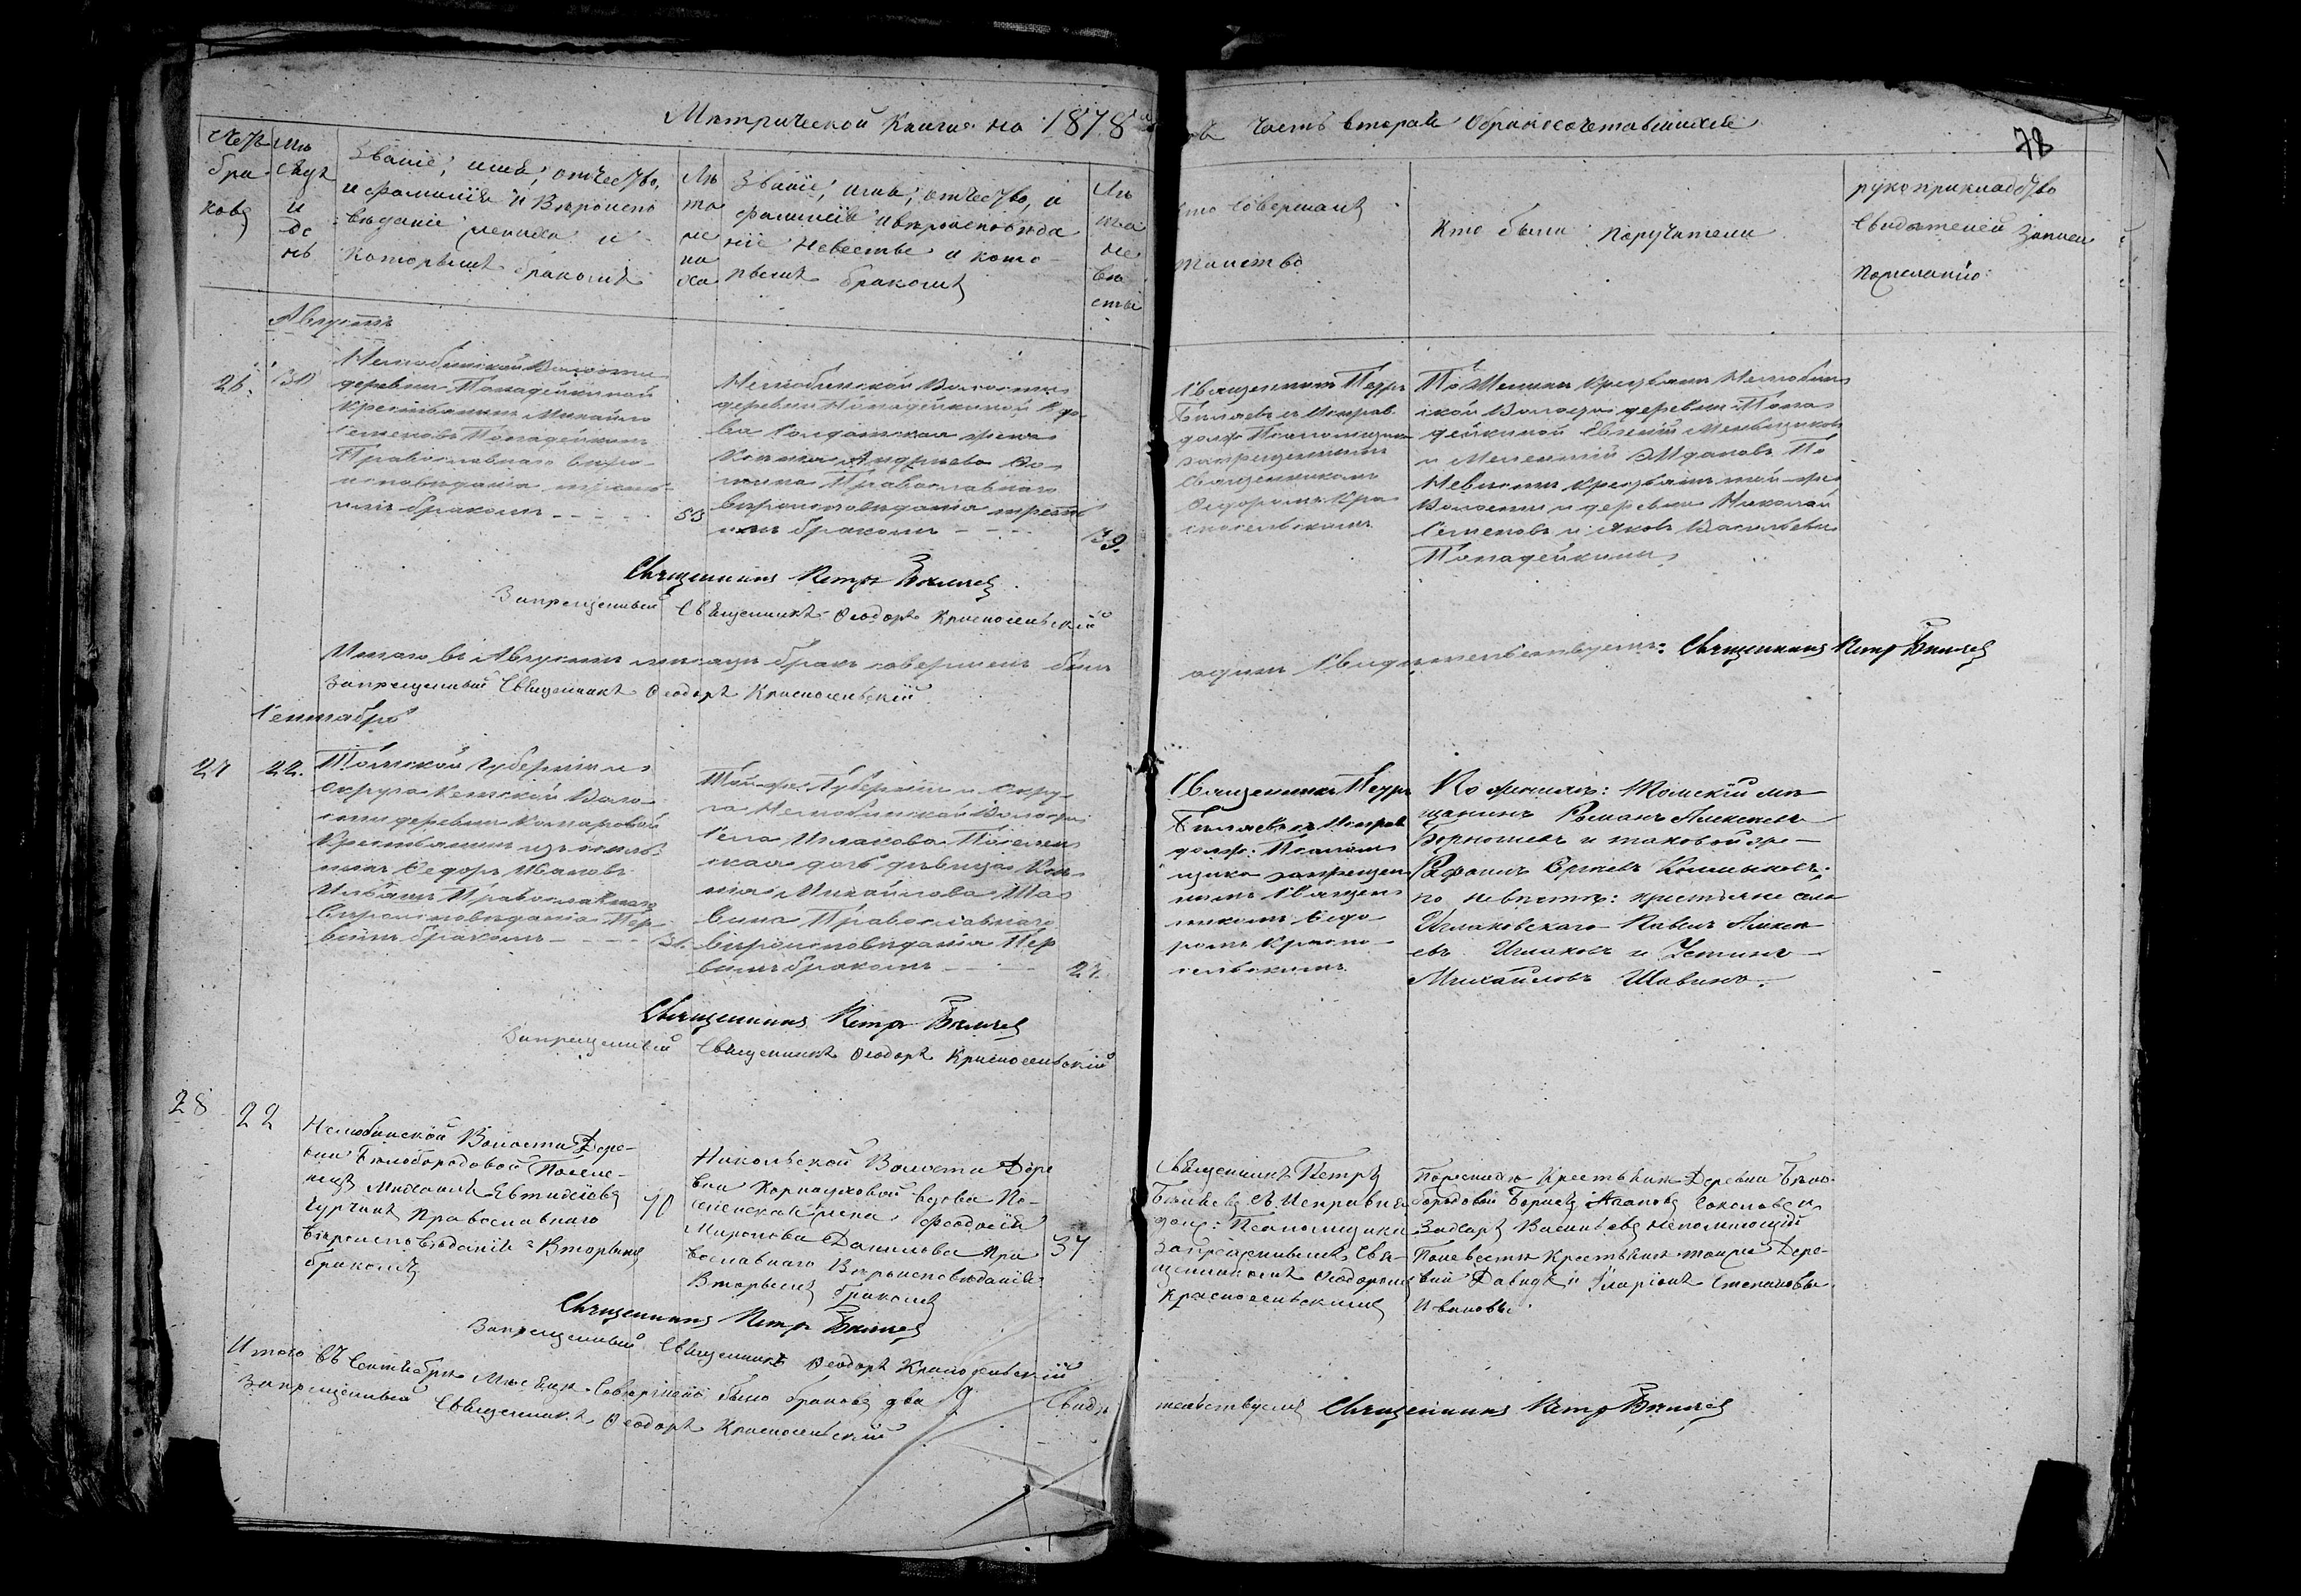 Метрической Книги на 1878й
годъ Часть вторая о бракосочетавшихся
78
Счетъ браковъ
Мѣсяцъ и день
Званіе, имя, отчество,
и фамилія и вѣроиспо
вѣданіе жениха и
которымъ бракомъ
Лѣта жениха
Званіе, имя, отчество, и
фамилія и вѣроисповѣда
ніе невесты и кото-
рымъ бракомъ
Лѣта невѣсты
Кто совершалъ
таинство
Кто были поручители
рукоприкладство
свидѣтелей записи
по желанію
Августъ
26.
30
Нелюбинской Волости
деревни Попадейкиной
Крестьянинъ Михайло
Семеновъ Попадейкинъ
Православнаго вѣро-
исповѣданія третьимъ
бракомъ
53
Нелюбинской Волости
деревни Попадейкиной вдо-
ва Солдатская жена
Андреева
Православнаго
вѣроисповѣданія треть
имъ бракомъ
39.
Священникъ Петръ
Бѣляевъ съ Исправ.
долж. Псаломщика
запрещеннымъ
Священникомъ
Ѳедоромъ Кра
сносельскимъ
По Женихѣ Крестьяне Нелюбин
ской Волости деревни Попа
дейкиной Евгеній Меньщиковъ
и Ждановъ По
Невѣстѣ Крестьяне той-же
Волости и деревни Николай
Семеновъ и Яковъ Васильевъ
Попадейкины
Священникъ Петръ Бѣляевъ
Запрещенный Священникъ Ѳеодоръ Красносельскій
Итого въ Августѣ мѣсяцѣ бракъ совершенъ былъ
одинъ Свидѣтельствуемъ: Священникъ Петръ Бѣляевъ
Запрещенный Священникъ Ѳеодоръ Красносельскій
Сентябрь
27
22.
Томской Губерніи и
округа Кетской Воло-
сти деревни Комаровой
Крестьянинъ изъ ссыль-
ныхъ Ѳедоръ Ивановъ
Ильинъ Православнаго
Вѣроисповѣданія Пер-
вымъ бракомъ
31.
Той-же Губерніи и Окру-
га Нелюбинской Волости
Села Иглакова Поселен
ская дочь дѣвица
Михайлова Ша
вина Православнаго
Вѣроисповѣданія Пер
вымъ бракомъ
27.
Священникъ Петръ
Бѣляевъ съ Исправ
долж. Псалом
щика запрещен
нымъ Священ
никомъ Ѳедо
ромъ Красно
сельскимъ
По женихѣ: Томскій мѣ-
щанинъ Романъ Алексѣевъ
и таковой же-
по невѣстѣ: крестьяне села
Иглаковскаго Павелъ Алексѣ-
евъ Иглаковъ и Устинъ
Михайловъ Шавинъ.
Священникъ Петръ Бѣляевъ
Запрещенный Священникъ Ѳеодоръ Красносельскій
28
22
Нелюбинской Волости Дере-
вни Бѣлобородовой Поселе-
нецъ Евтихіевъ
Православнаго
Вѣроисповѣданія Вторымъ
бракомъ
70
Никольской Волости Дере
вни Карнауховой вдова По-
селенская жена Ѳеодосія
Миронова Данилова Пра
вославнаго Вѣроисповѣданія
Вторымъ бракомъ
37
Священникъ Петръ
Бѣляевъ съ Исправля
долж: Псаломщика
Запрещеннымъ Свя-
щенникомъ Ѳеодоромъ
Красносельскимъ
По женихѣ Крестьяне Деревни Бѣло-
бородовой Борисъ Соколовъ и
Захаръ Васильевъ Непомнющій
По невестѣ Крестьяне той же Дере-
вни Давидъ и Иларіонъ Степановы
Ивановы.
Священникъ Петръ Бѣляевъ
Запрещенный Священникъ Ѳеодоръ Красносельскій
Итого въ Сентябрѣ Мѣсяцѣ Совершено было браковъ два Свидѣ
тельствуемъ Священникъ Петръ Бѣляевъ
Запрещенный Священникъ Ѳеодоръ Красносельскій